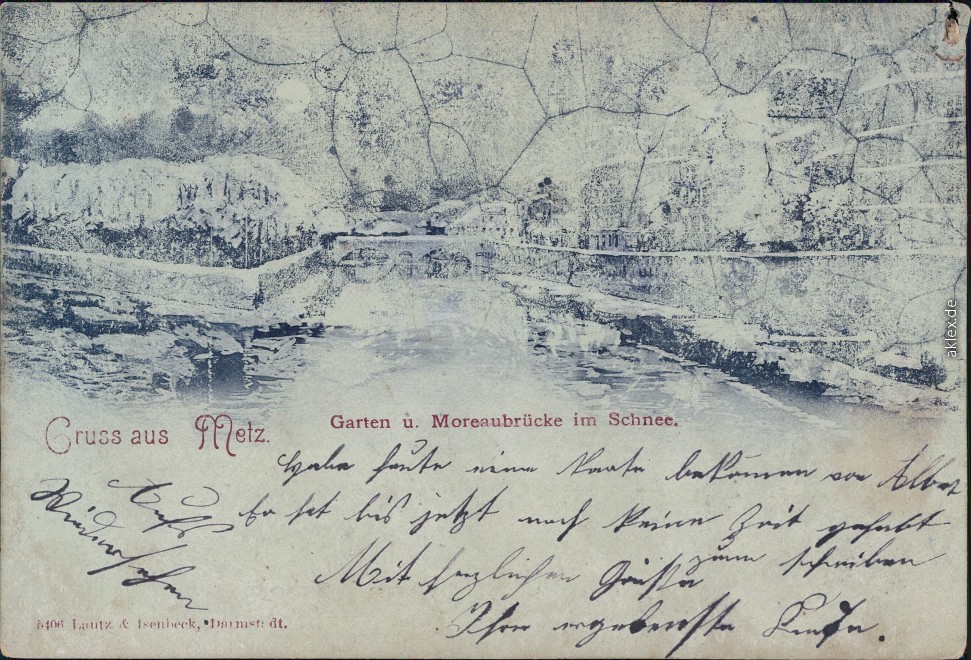 Gruss aus Metz.
Garten u. Moreaubrücke im Schnee.
Habe heute eine Karte bekommen von Albert
Er hat bis jetzt noch keine Zeit gehabt
zum schreiben
Mit herzlichen Grüssen
Ihre ergebenste
Auf
Wiedersehen
5406 Lautz & Isenbeck, Darmstadt.
aklex.de